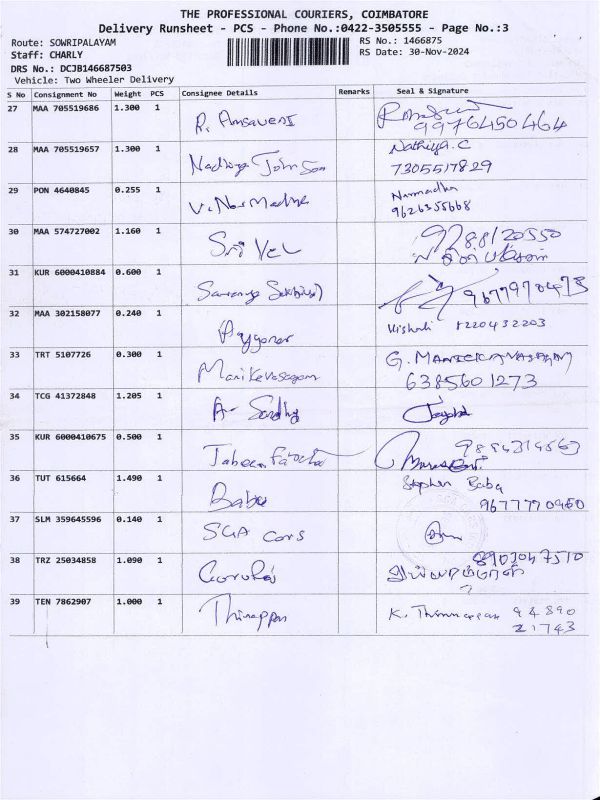 THE PROFESSIONAL COURIERS, COIMBATORE
Delivery Runsheet - PCS - Phone No.:0422-3505555 - Page No.:3
Route: SOWRIPALAYAM RS No.: 1466875
Staff: CHARLY RS Date: 30-Nov-2024
DRS No.: DCJB146687503
Vehicle: Two Wheeler Delivery
S No Consignment No Weight PCS Consignee Details Remarks Seal & Signature
27 MAA 705519686 1.300 1
R. Amsaveni
9976450464
28 MAA 705519657 1.300 1 Nathiya.C
Nadhiya Johnson 7305517829
29 PON 4640845 0.255 1 Narmadha
V. Narmadha 9626355668
30 MAA 574727002 1.160 1 9788120550
Sri Vel
31 KUR 6000410884 0.600 1
9677970473
32 MAA 302158077 0.240 1
Vishali 8220432203
33 TRT 5107726 0.300 1 G. MANICKAVASAGAM
Manikevasagam 6385601273
34 TCG 41372848 1.205 1
35 KUR 6000410675 0.500 1
36 TUT 615664 1.490 1 Stephen Baba
Babu 9677770450
37 SLM 359645596 0.140 1
SGA Cars
38 TRZ 25034858 1.090 1 8903047510
39 TEN 7862907 1.000 1
Thinappan K. 94890
21743